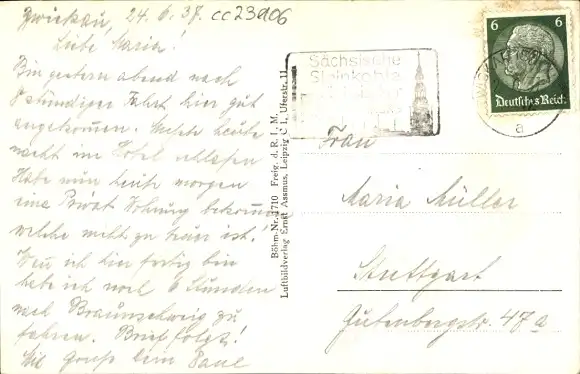 Zwickau, 24.6.37. cc23906
Liebe Maria!
Bin gestern abend nach
8 stündiger Fahrt hier gut
angekommen. Mußte heute
nacht im Hotel schlafen
Habe nun heute morgen
eine Privat Wohnung bekomm
welche nicht zu teuer ist!
Wenn ich hier fertig bin
habe ich noch 6 Stunden
nach Braunschweig zu
fahren. Brief folgt!
Gruß dein Paul
Böhm-Nr. 4710 Freig. d. R. l. M.
Luftbildverlag Ernst Assmus, Leipzig C 1, Uferstr. 11
Sächsische
Steinkohle
6 6
Deutsches Reich
a
Frau
Maria Müller
Stuttgart
Gutenbergstr. 47a